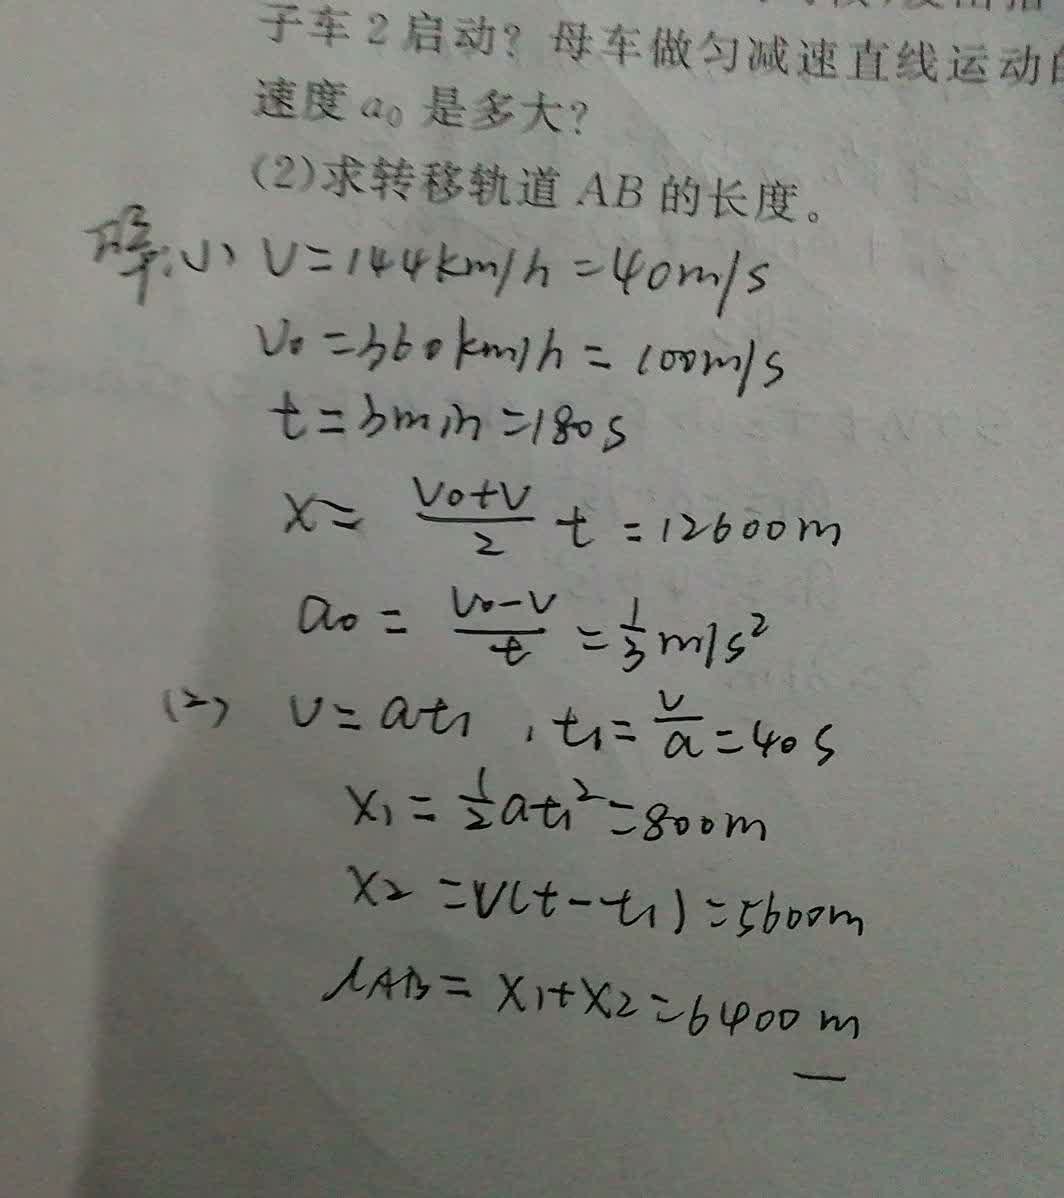 子车2启动？母车做匀减速直线运动
速度a₀是多大？
(2)求转移轨道AB的长度。
解:(1) V=144km/h=40m/s
V₀=360km/h=100m/s
t=3min=180s
X= (V₀+V)/2 t=12600m
a₀= (V₀-V)/t = 1/3 m/s²
(2) V=at₁ , t₁= V/a =40s
X₁= 1/2 at₁²=800m
X₂=V(t-t₁)=5600m
lAB=X₁+X₂=6400m